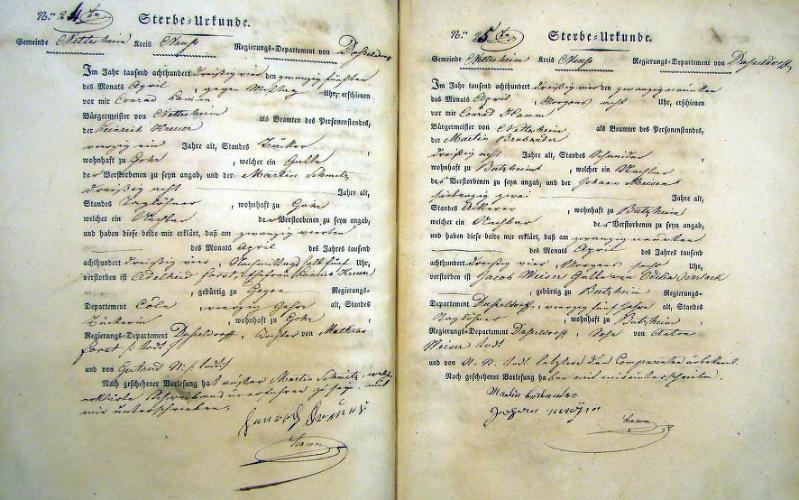 No. 24ten Sterbe-Urkunde.
Gemeinde Nettesheim Kreis Neuß Regierungs-Departement von Düsseldorf
Im Jahr tausend achthundert dreißig vier den zwanzig fünften
des Monats April, gegen Mittag Uhr, erschienen
vor mir Conrad Hamm
Bürgermeister von Nettesheim als Beamten des Personenstandes,
der Heinrich Kreuer
vierzig ein Jahre alt, Standes Äcker
wohnhaft zu Gohr, welcher ein Gatte
der Verstorbenen zu seyn angab, und der Martin Schmitz
dreißig acht Jahre alt,
Standes Taglöhner, wohnhaft zu Gohr
welcher ein Nachbar der Verstorbenen zu seyn angab,
und haben diese beide mir erklärt, daß am zwanzig vierten
des Monats April des Jahres tausend
achthundert dreißig vier, Nachmittags halb fünf Uhr,
verstorben ist Adelheid Forst, Ehefrau Heinrich Kreuer
, gebürtig zu Regierungs-
Departement Cöln, vierzig Jahr alt, Standes
Äckerin, wohnhaft zu Gohr,
Regierungs-Departement Düsseldorf, Tochter von Mathias
Forst todt
und von Gertrud todt
Nach geschehener Vorlesung hat außer Martin Schmitz, welcher
erklärte Schreibens unerfahren zu seyn, mit
mir unterschrieben.
Henrich Kreuer
Hamm
No. 25ten Sterbe-Urkunde.
Gemeinde Nettesheim Kreis Neuß Regierungs-Departement von Düsseldorf
Im Jahr tausend achthundert dreißig vier den zwanzig neunten
des Monats April, Morgens acht Uhr, erschienen
vor mir Conrad Hamm
Bürgermeister von Nettesheim als Beamten des Personenstandes,
der Martin Brabender
dreißig acht Jahre alt, Standes Schneider
wohnhaft zu Butzheim, welcher ein Nachbar
des Verstorbenen zu seyn angab, und der Johann Meisen
siebenzig zwei Jahre alt,
Standes Ackerer, wohnhaft zu Butzheim
welcher ein Nachbar des Verstorbenen zu seyn angab,
und haben diese beide mir erklärt, daß am zwanzig neunten
des Monats April des Jahres tausend
achthundert dreißig vier, Morgens sechs Uhr,
verstorben ist Jacob Weiser Gatte von Cäcilia
, gebürtig zu Butzheim Regierungs-
Departement Düsseldorf, vierzig fünf Jahre alt, Standes
Taglöhner, wohnhaft zu Butzheim,
Regierungs-Departement Düsseldorf, Sohn von Anton
Weiser todt
und von N. N. todt, letztere den Comparenten unbekannt.
Nach geschehener Vorlesung haben mit mir unterschrieben.
Martin brabender
Johan
Hamm